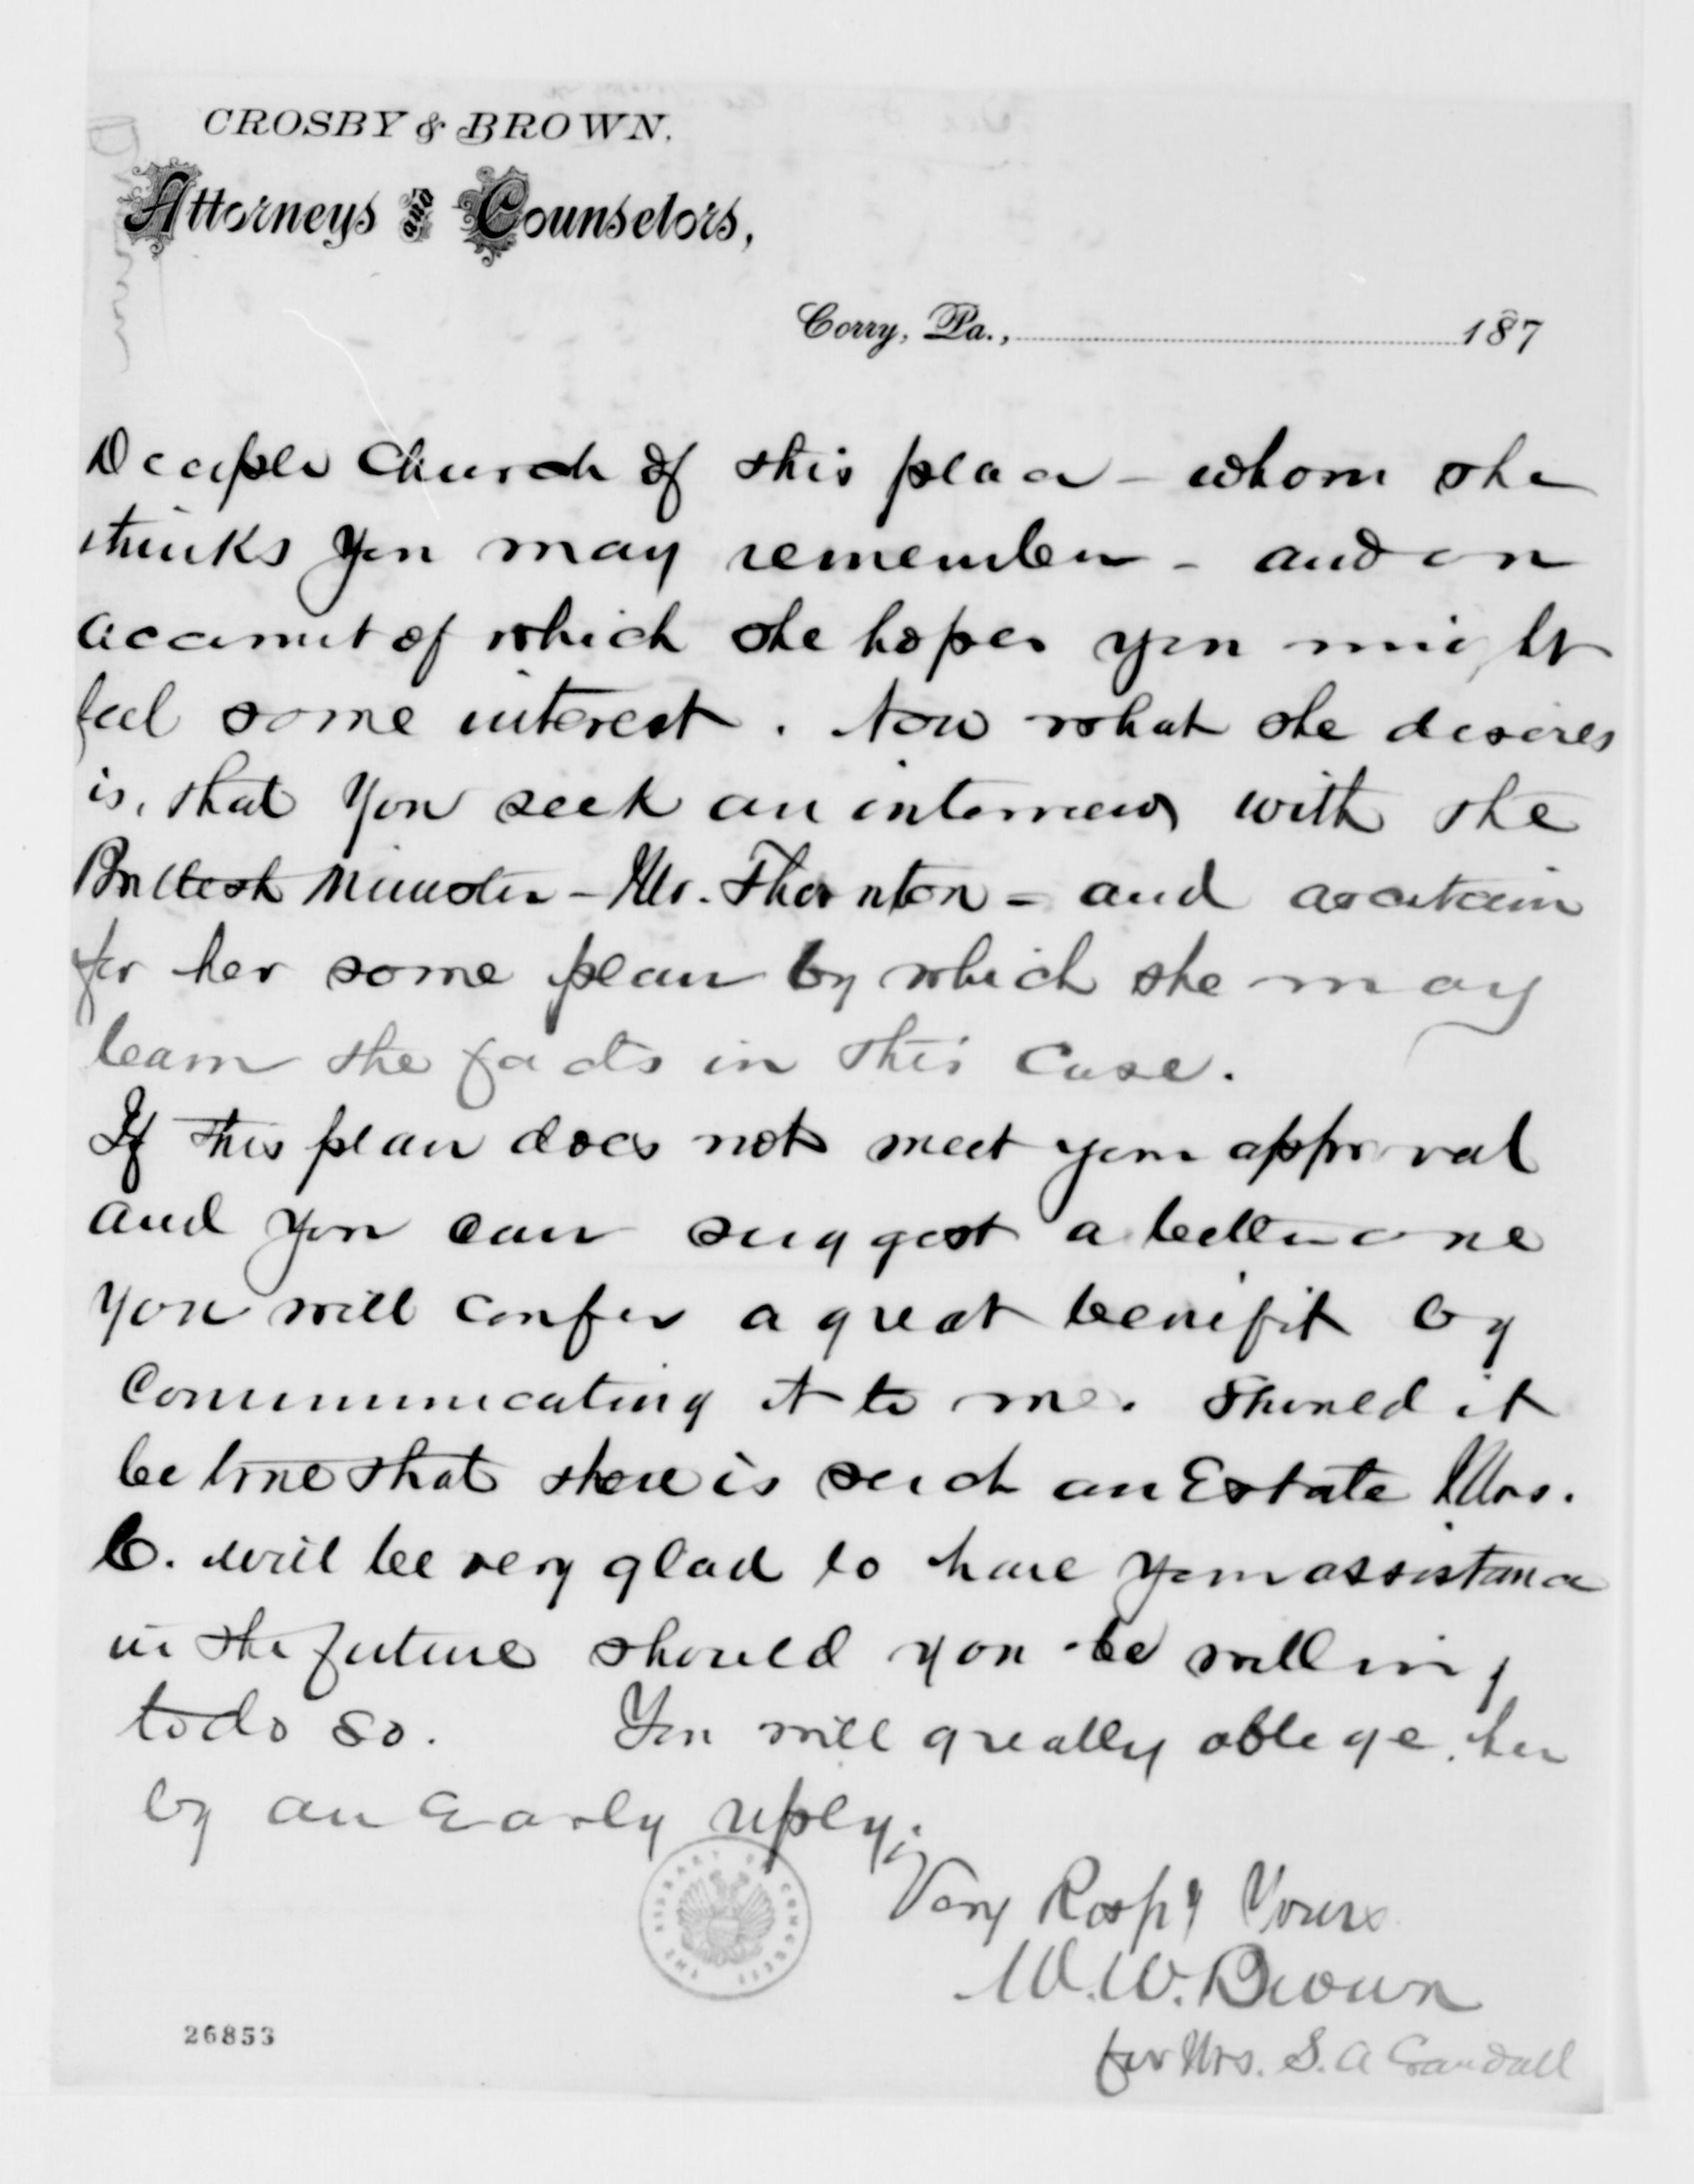 CROSBY & BROWN.
Attorneys and Counselors,
Corry, Pa., 187
Deciple Church of this place - whom she
thinks you may remember - and on
account of which she hopes you might
feel some interest. Now what she desires
is, that you seek an interview with the
Brittish Minister - Mr. Thornton - and ascertain
for her some plan by which she may
learn the facts in this case.
If this plan does not meet your approval
and you can suggest a better one
you will confer a great benifit by
communicating it to me. Should it
be true that there is such an Estate Mrs.
C. will be very glad to have your assistance
in the future should you be willing
to do so. You will greatly oblege her
by an Early reply.
Very Respy Yours
W. W. Brown
for Mrs. S. A Crandall
THE LIBRARY OF CONGRESS
26853